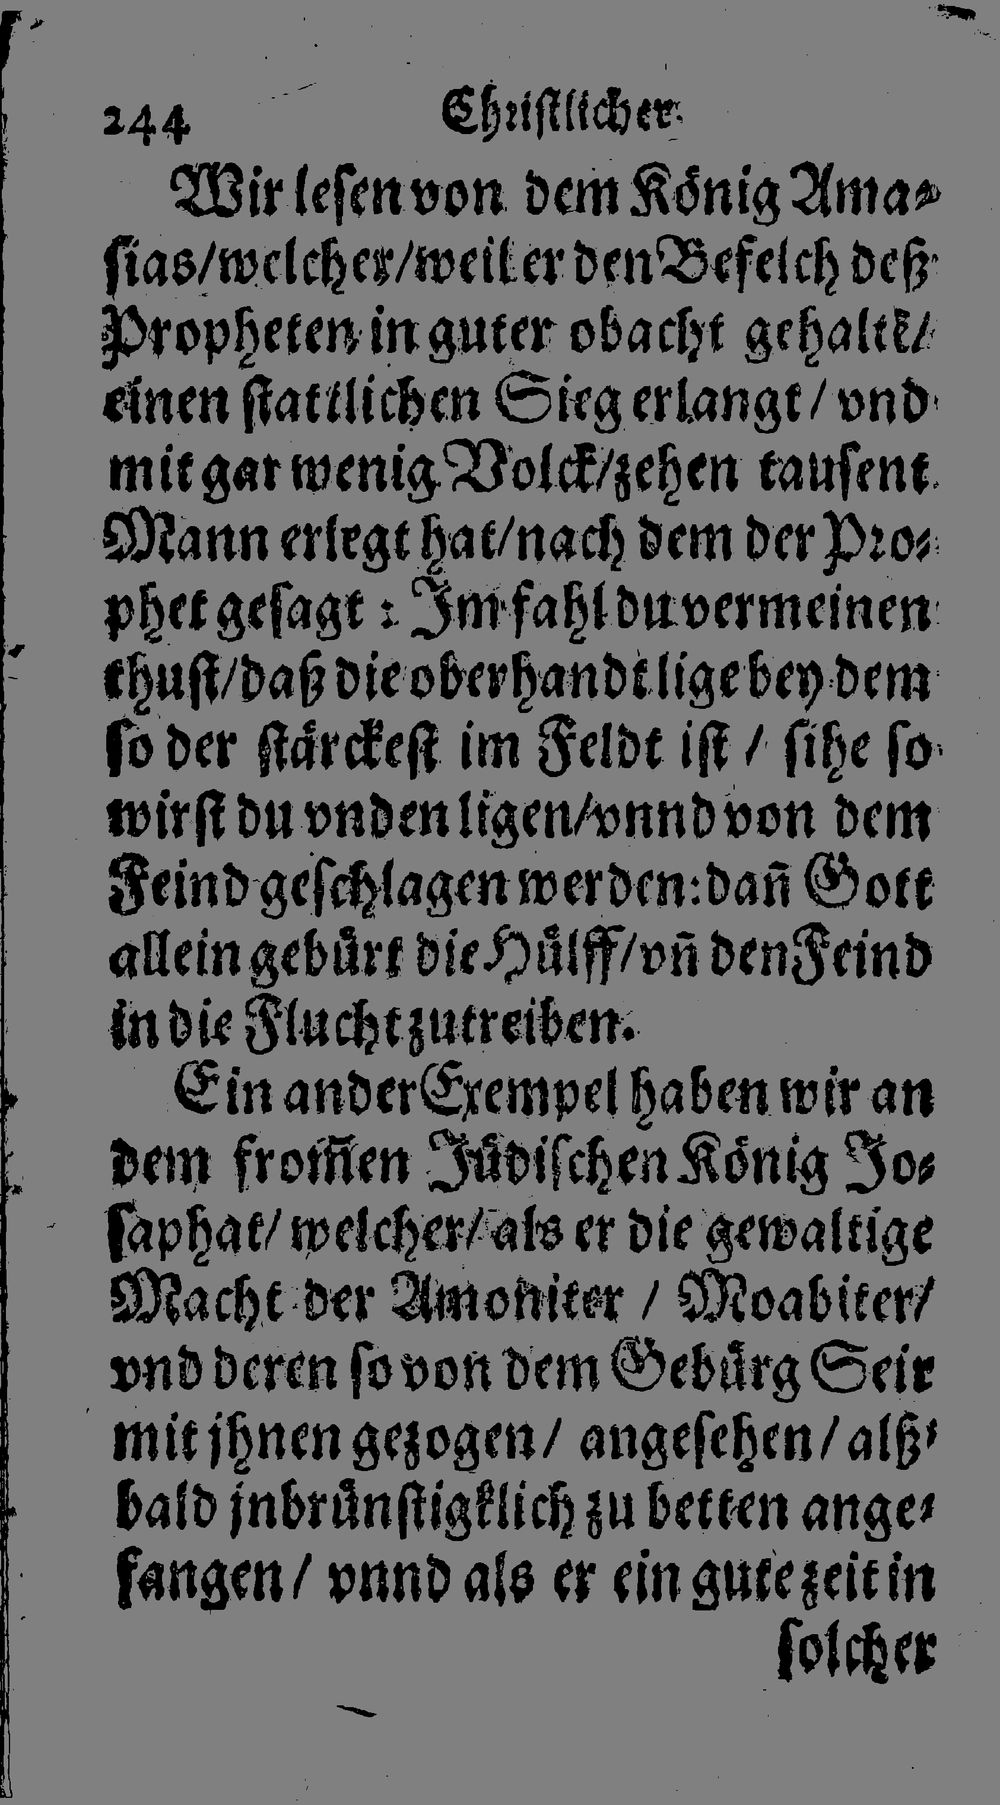 244 Christlicher
Wir lesen von dem König Ama⸗
sias/welcher/weil er den Befelch deß
Propheten in guter obacht gehaltē/
einen stattlichen Sieg erlangt/ vnd
mit gar wenig Volck/zehen tausent
Mann erlegt hat/nach dem der Pro⸗
phet gesagt: Im fahl du vermeinen
thust/daß die oberhandt lige bey dem
so der stärckest im Feldt ist / sihe so
wirst du vnden ligen/vnnd von dem
Feind geschlagen werden: dañ Gott
allein gebürt die Hülff/vñ den Feind
in die Flucht zutreiben.
Ein ander Exempel haben wir an
dem from̃en Jüdischen König Jo⸗
saphat/ welcher/ als er die gewaltige
Macht der Amoniter / Moabiter/
vnd deren so von dem Gebürg Seir
mit jhnen gezogen/ angesehen/ alß⸗
bald jnbrünstigklich zu betten ange⸗
fangen/ vnnd als er ein gute zeit in
solcher